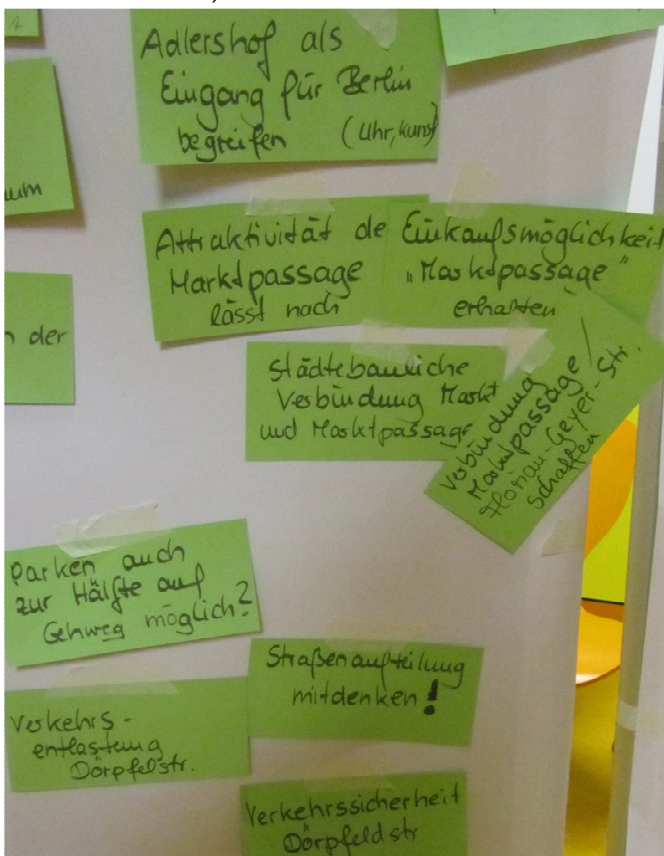 Adlershof als
Eingang für Berlin
begreifen (Uhr, Kunst)
um
Attraktivität de
Marktpassage
lässt nach
Einkaufsmöglichkeit
"Marktpassage"
erhalten
n der
Städtebauliche
Verbindung Markt
und Marktpassage
Verbindung
Marktpassage/
Florian-Geyer-Str.
schaffen
Parken auch
zur Hälfte auf
Gehweg möglich?
Straßenaufteilung
mitdenken!
Verkehrs-
entlastung
Dörpfelstr.
Verkehrssicherheit
Dörpfeldstr